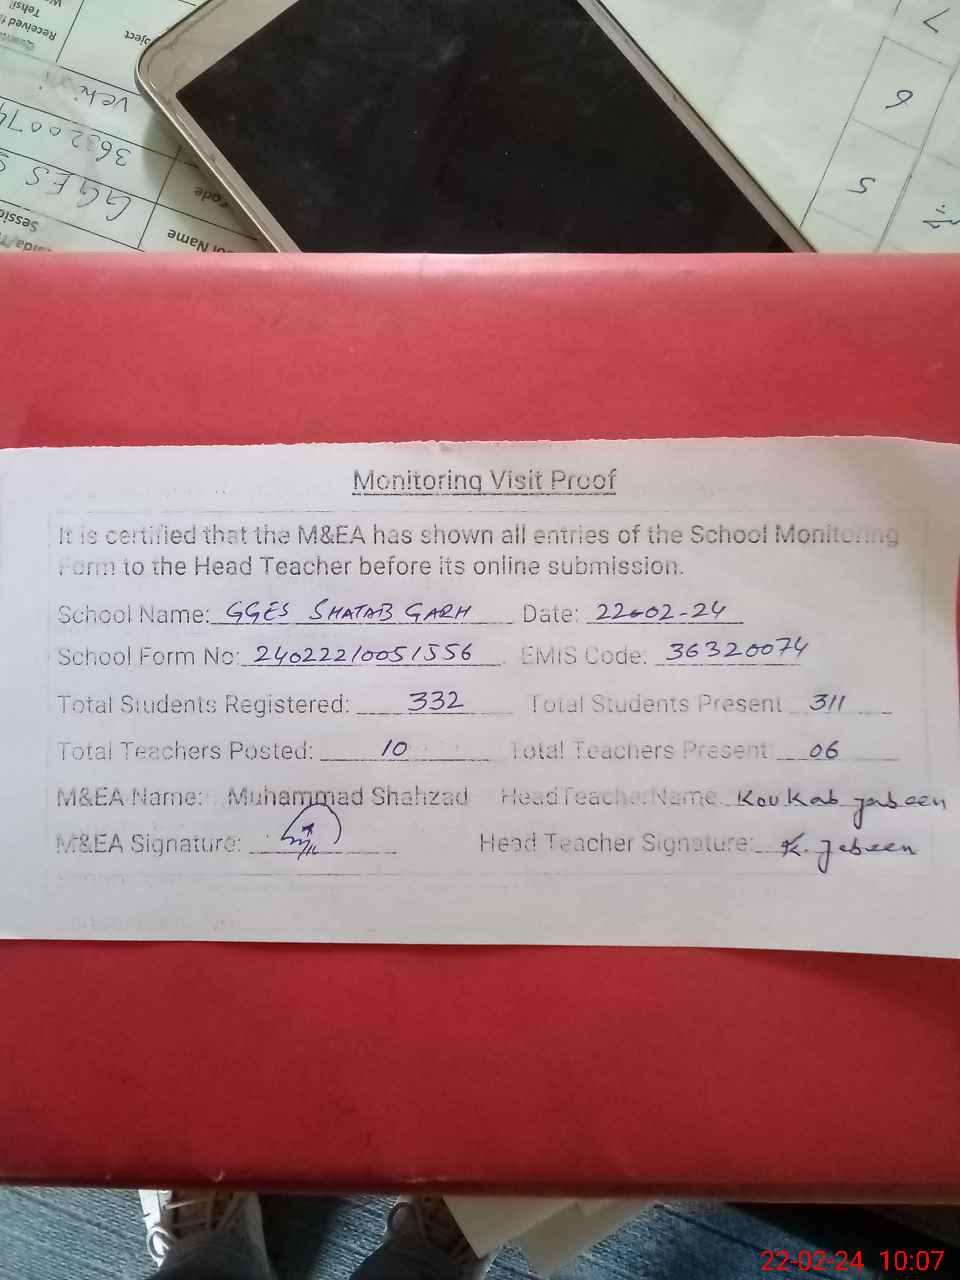 Received
Tehsil
ject
vehari
36320074
Code
GGES S
ol Name
Sessi
7
6
5
Monitoring Visit Proof
It is certified that the M&EA has shown all entries of the School Monitoring
Form to the Head Teacher before its online submission.
School Name: GGES SHATAB GARH Date: 22-02-24
School Form No: 24022210051556 EMIS Code: 36320074
Total Students Registered: 332 Total Students Present 311
Total Teachers Posted: 10 Total Teachers Present: 06
M&EA Name: Muhammad Shahzad Head Teacher Name Koukab Jabeen
M&EA Signature: Head Teacher Signature: K. Jabeen
22-02-24 10:07